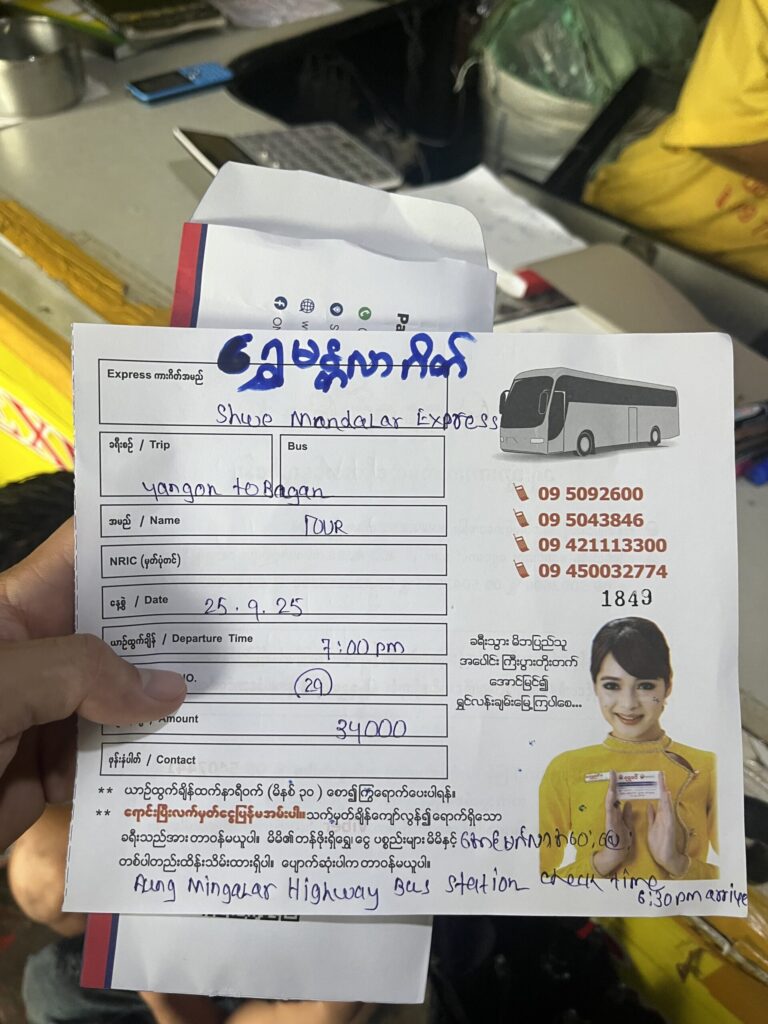 ရွှေမန္တလာဂိတ်
Express ကားဂိတ်အမည်
Shwe Mandalar Express
ခရီးစဉ် / Trip
Bus
Yangon to Bagan
အမည် / Name
TOUR
NRIC (မှတ်ပုံတင်)
နေ့စွဲ / Date
25.9.25
ယာဉ်ထွက်ချိန် / Departure Time
7:00 pm
NO.
29
Amount
34000
ဖုန်းနံပါတ် / Contact
09 5092600
09 5043846
09 421113300
09 450032774
1849
ခရီးသွား မိဘပြည်သူ
အပေါင်း ကြီးပွားတိုးတက်
အောင်မြင်၍
ရွှင်လန်းချမ်းမြေ့ကြပါစေ...
** ယာဉ်ထွက်ချိန်ထက်နာရီဝက် (မိနစ် ၃၀ ) စော၍ကြွရောက်ပေးပါရန်။
** ရောင်းပြီးလက်မှတ်ငွေပြန်မအမ်းပါ။ သတ်မှတ်ချိန်ကျော်လွန်၍ ရောက်ရှိသော
ခရီးသည်အား တာဝန်မယူပါ။ မိမိ၏ တန်ဖိုးရှိရွှေ၊ ငွေ ပစ္စည်းများ မိမိနှင့်
တစ်ပါတည်းထိန်းသိမ်းထားရှိပါ။ ပျောက်ဆုံးပါက တာဝန်မယူပါ။
Aung Mingalar Highway Bus Station check time
6:30pm arrive